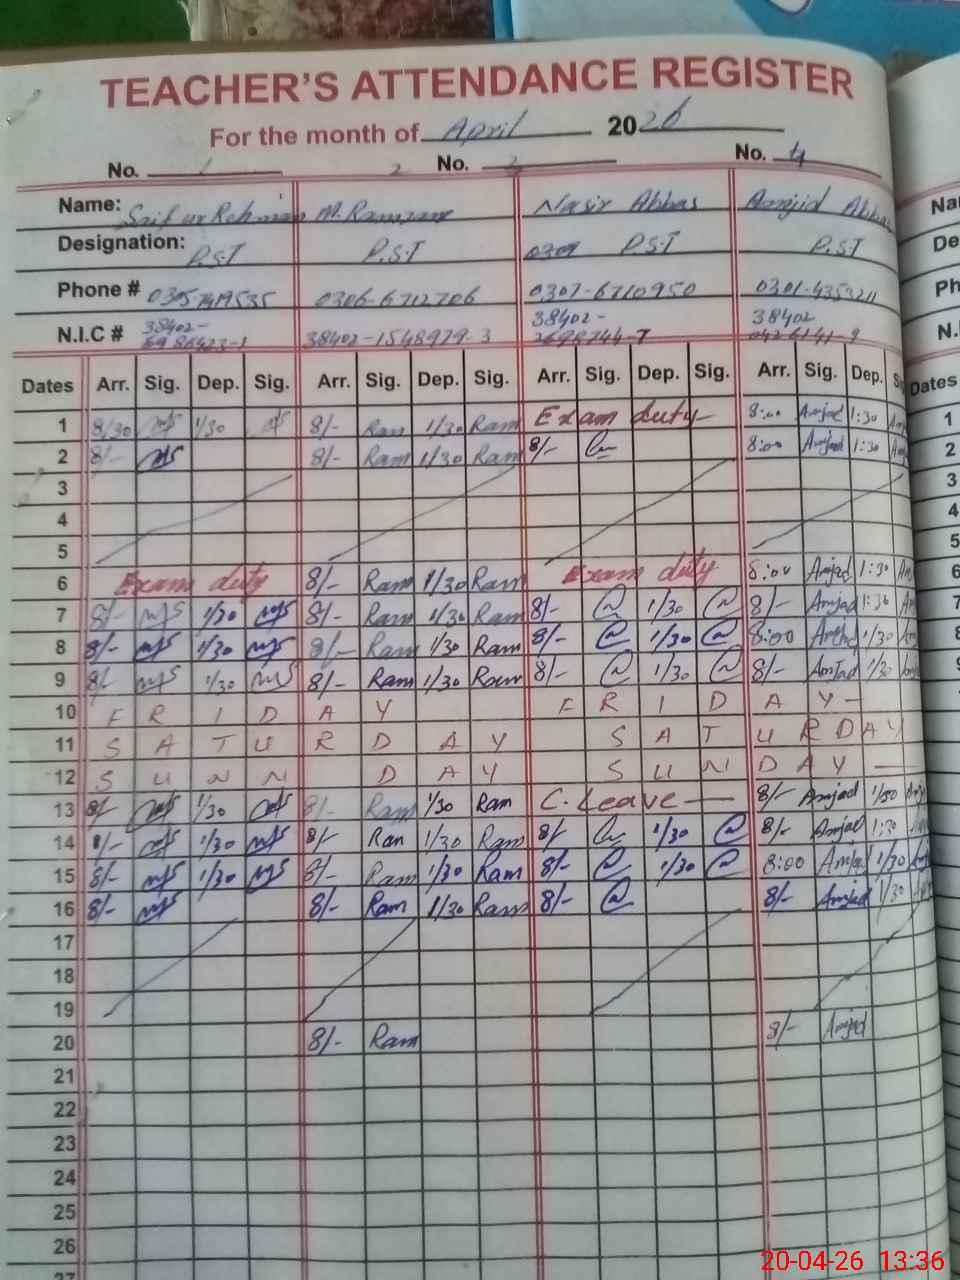 TEACHER'S ATTENDANCE REGISTER
For the month of April 2026
No. 1 2 No. 3 No. 4
Name: Saif ur Rehman M. Ramzan Nasir Abbas Amjid Abbas Na
Designation: P.S.T P.S.T 0307 P.S.T P.S.T De
Phone # 0306-6712706 0307-6710950 Ph
38402- 38402- 38402
N.I.C # 38402-1548979-3 N.
Dates Arr. Sig. Dep. Sig. Arr. Sig. Dep. Sig. Arr. Sig. Dep. Sig. Arr. Sig. Dep. Dates
1 8/30 1/30 8/- Ram 1/30 Ram Exam duty 8:00 Amjad 1:30 1
2 8/- 8/- Ram 1/30 Ram 8/- 8:00 Amjad 1:30 2
3 3
4 4
5 5
6 Exam duty 8/- Ram 1/30 Ram Exam duty 8:00 Amjad 1:30 6
7 8/- 1/30 8/- Ram 1/30 Ram 8/- 1/30 8/- Amjad 1:30 7
8 8/- 1/30 8/- Ram 1/30 Ram 8/- 1/30 8:00 1/30 8
9 8/- 1/30 8/- Ram 1/30 Ram 8/- 1/30 8/- Amjad 1/30 9
10 F R I D A Y F R I D A Y - 10
11 S A T U R D A Y S A T U R D A Y 11
12 S U N N D A Y S U N D A Y — 12
13 8/- 1/30 8/- Ram 1/30 Ram C. Leave — 8/- Amjad 1/30 13
14 8/- 1/30 8/- Ram 1/30 Ram 8/- 1/30 8/- Amjad 1:30 14
15 8/- 1/30 8/- Ram 1/30 Ram 8/- 1/30 8:00 Amjad 1/30 15
16 8/- 8/- Ram 1/30 Ram 8/- 8/- Amjad 1/30 16
17
18
19
20 8/- Ram 8/- Amjad
21
22
23
24
25
26
27
20-04-26 13:36